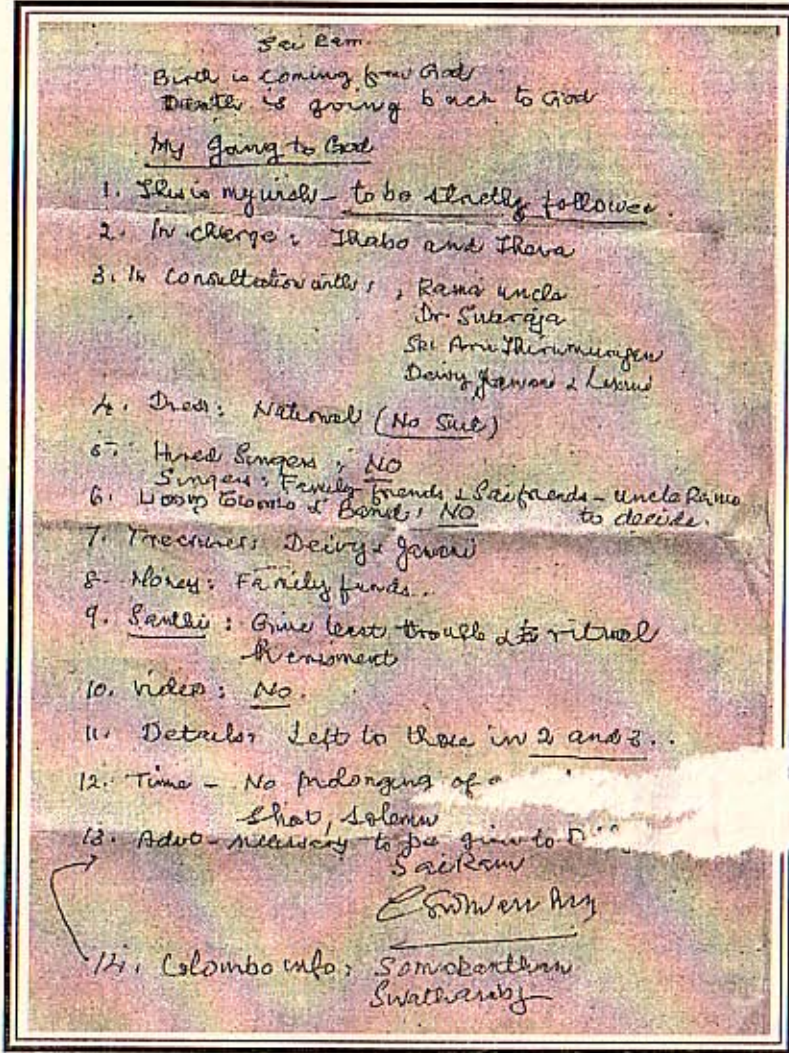 Sai Ram.
Birth is coming from God
Death is going back to God
My going to God
1. This is my wish - to be strictly followed.
2. In charge: Thabo and Thava
3. In Consultation with: , Rama uncle
Dr.
Sri Aru Thirumurugan
4. Dress: National (No Suit)
5. Hired Singers; NO
Singers: Family friends & Sai friends - uncle Rama
to decide.
6. & Band: NO
7. Treasurers: Deivy &
8. Money: Family funds..
9. Santhi: Give least trouble & ritual
10. Video: No.
11. Details: Left to those in 2 and 3..
12. Time - No prolonging of
Short, Solemn
13. Advt - necessary to be given to
Sai Ram
14. Colombo info: